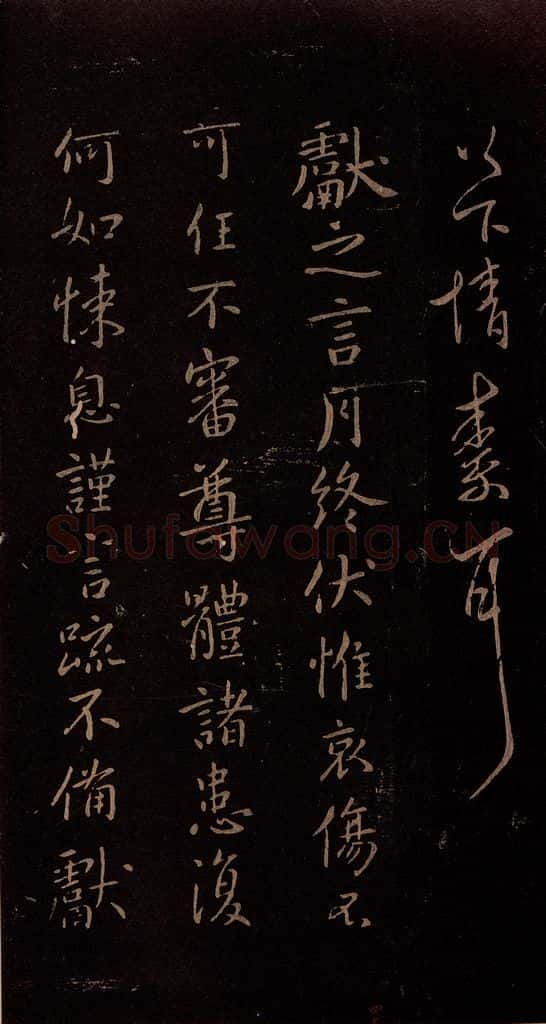 以下情耳
獻之言月終伏惟哀傷不
可任不審尊體諸患復
何如悚息謹言疏不備獻
Shufawang.CN